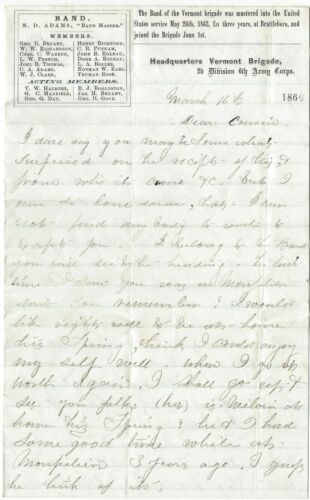 BAND.
N. D. ADAMS, "BAND MASTER."
MEMBERS.
GEO. E. BRYANT,
W. W. RICHARDSON,
CHAS. C. WARREN,
L. W. FRENCH,
JOEL B. THOMAS,
C. A. ADAMS,
W. J. CLARK,
HENRY BURPORT,
C. B. PUTNAM,
JOHN B. ROLEAU,
DORE A. ROLEAU,
L. A. BOLLES,
NORMAN W. EARL,
TRUMAN ROSE.
ACTING MEMBERS.
V. W. HALBERT,
O. C. MAXFIELD,
GEO. G. DAY,
R. J. EGGLESTON,
JAS. H. BRYANT,
GEO. H. GOVE.
The Band of the Vermont brigade was mustered into the United
States service May 26th, 1863, for three years, at Brattleboro, and
joined the Brigade June 1st.
Headquarters Vermont Brigade,
2d Division 6th Army Corps.
March 16th 186
Dear Cousin
I dare say you may be some what
surprised on the recipts of this, &
from who it came &c. but I
can do some down, that I can
not find any body to write to
except you. I belong to the Band
you will see by the heading. The last
time I saw you was in Montpelier
dont you remember? I would
like right well to be at home
this Spring, think I could enjoy
my self well. when I go
north again, I shall go up &
see you folks (the) is Melvin at
home this Spring? he & I had
some good time while at
Montpelier 3 years ago. I guess
he think of it.